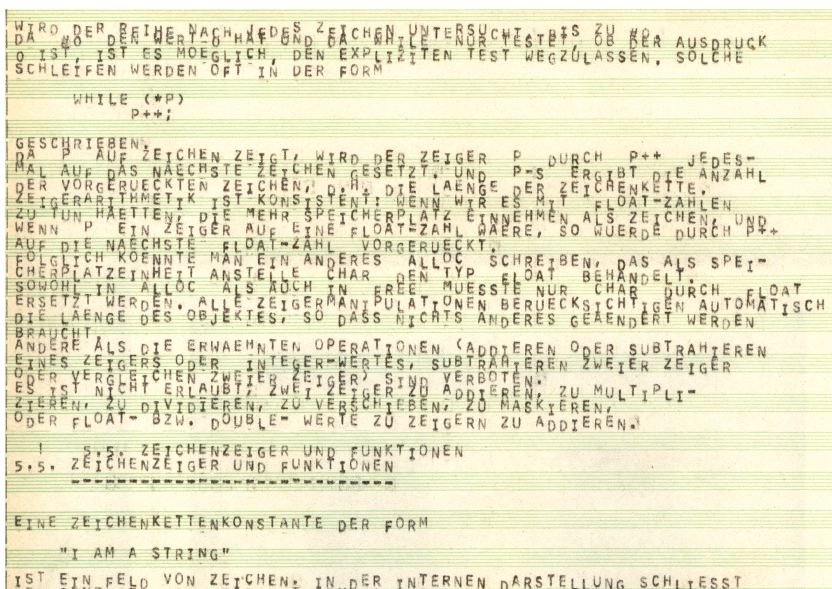 WIRD DER REIHE NACH JEDES ZEICHEN UNTERSUCHT, BIS ZU \0.
DA \0 DEN WERT 0 HAT UND DA WHILE NUR TESTET, OB DER AUSDRUCK
0 IST, IST ES MOEGLICH, DEN EXPLIZITEN TEST WEGZULASSEN. SOLCHE
SCHLEIFEN WERDEN OFT IN DER FORM
WHILE (*P)
P++;
GESCHRIEBEN.
DA P AUF ZEICHEN ZEIGT, WIRD DER ZEIGER P DURCH P++ JEDES-
MAL AUF DAS NAECHSTE ZEICHEN GESETZT. UND P-S ERGIBT DIE ANZAHL
DER VORGERUECKTEN ZEICHEN, D.H. DIE LAENGE DER ZEICHENKETTE.
ZEIGERARITHMETIK IST KONSISTENT: WENN WIR ES MIT FLOAT-ZAHLEN
ZU TUN HAETTEN, DIE MEHR SPEICHERPLATZ EINNEHMEN ALS ZEICHEN, UND
WENN P EIN ZEIGER AUF EINE FLOAT-ZAHL WAERE, SO WUERDE DURCH P++
AUF DIE NAECHSTE FLOAT-ZAHL VORGERUECKT.
FOLGLICH KOENNTE MAN EIN ANDERES ALLOC SCHREIBEN, DAS ALS SPEI-
CHERPLATZEINHEIT ANSTELLE CHAR DEN TYP FLOAT BEHANDELT.
SOWOHL IN ALLOC ALS AUCH IN FREE MUESSTE NUR CHAR DURCH FLOAT
ERSETZT WERDEN. ALLE ZEIGERMANIPULATIONEN BERUECKSICHTIGEN AUTOMATISCH
DIE LAENGE DES OBJEKTES, SO DASS NICHTS ANDERES GEAENDERT WERDEN
BRAUCHT.
ANDERE ALS DIE ERWAEHNTEN OPERATIONEN (ADDIEREN ODER SUBTRAHIEREN
EINES ZEIGERS ODER INTEGER-WERTES, SUBTRAHIEREN ZWEIER ZEIGER
ODER VERGLEICHEN ZWEIER ZEIGER) SIND VERBOTEN.
ES IST NICHT ERLAUBT, ZWEI ZEIGER ZU ADDIEREN, ZU MULTIPLI-
ZIEREN, ZU DIVIDIEREN, ZU VERSCHIEBEN, ZU MASKIEREN,
ODER FLOAT- BZW. DOUBLE- WERTE ZU ZEIGERN ZU ADDIEREN.
! 5.5. ZEICHENZEIGER UND FUNKTIONEN
5.5. ZEICHENZEIGER UND FUNKTIONEN
EINE ZEICHENKETTENKONSTANTE DER FORM
"I AM A STRING"
IST EIN FELD VON ZEICHEN. IN DER INTERNEN DARSTELLUNG SCHLIESST